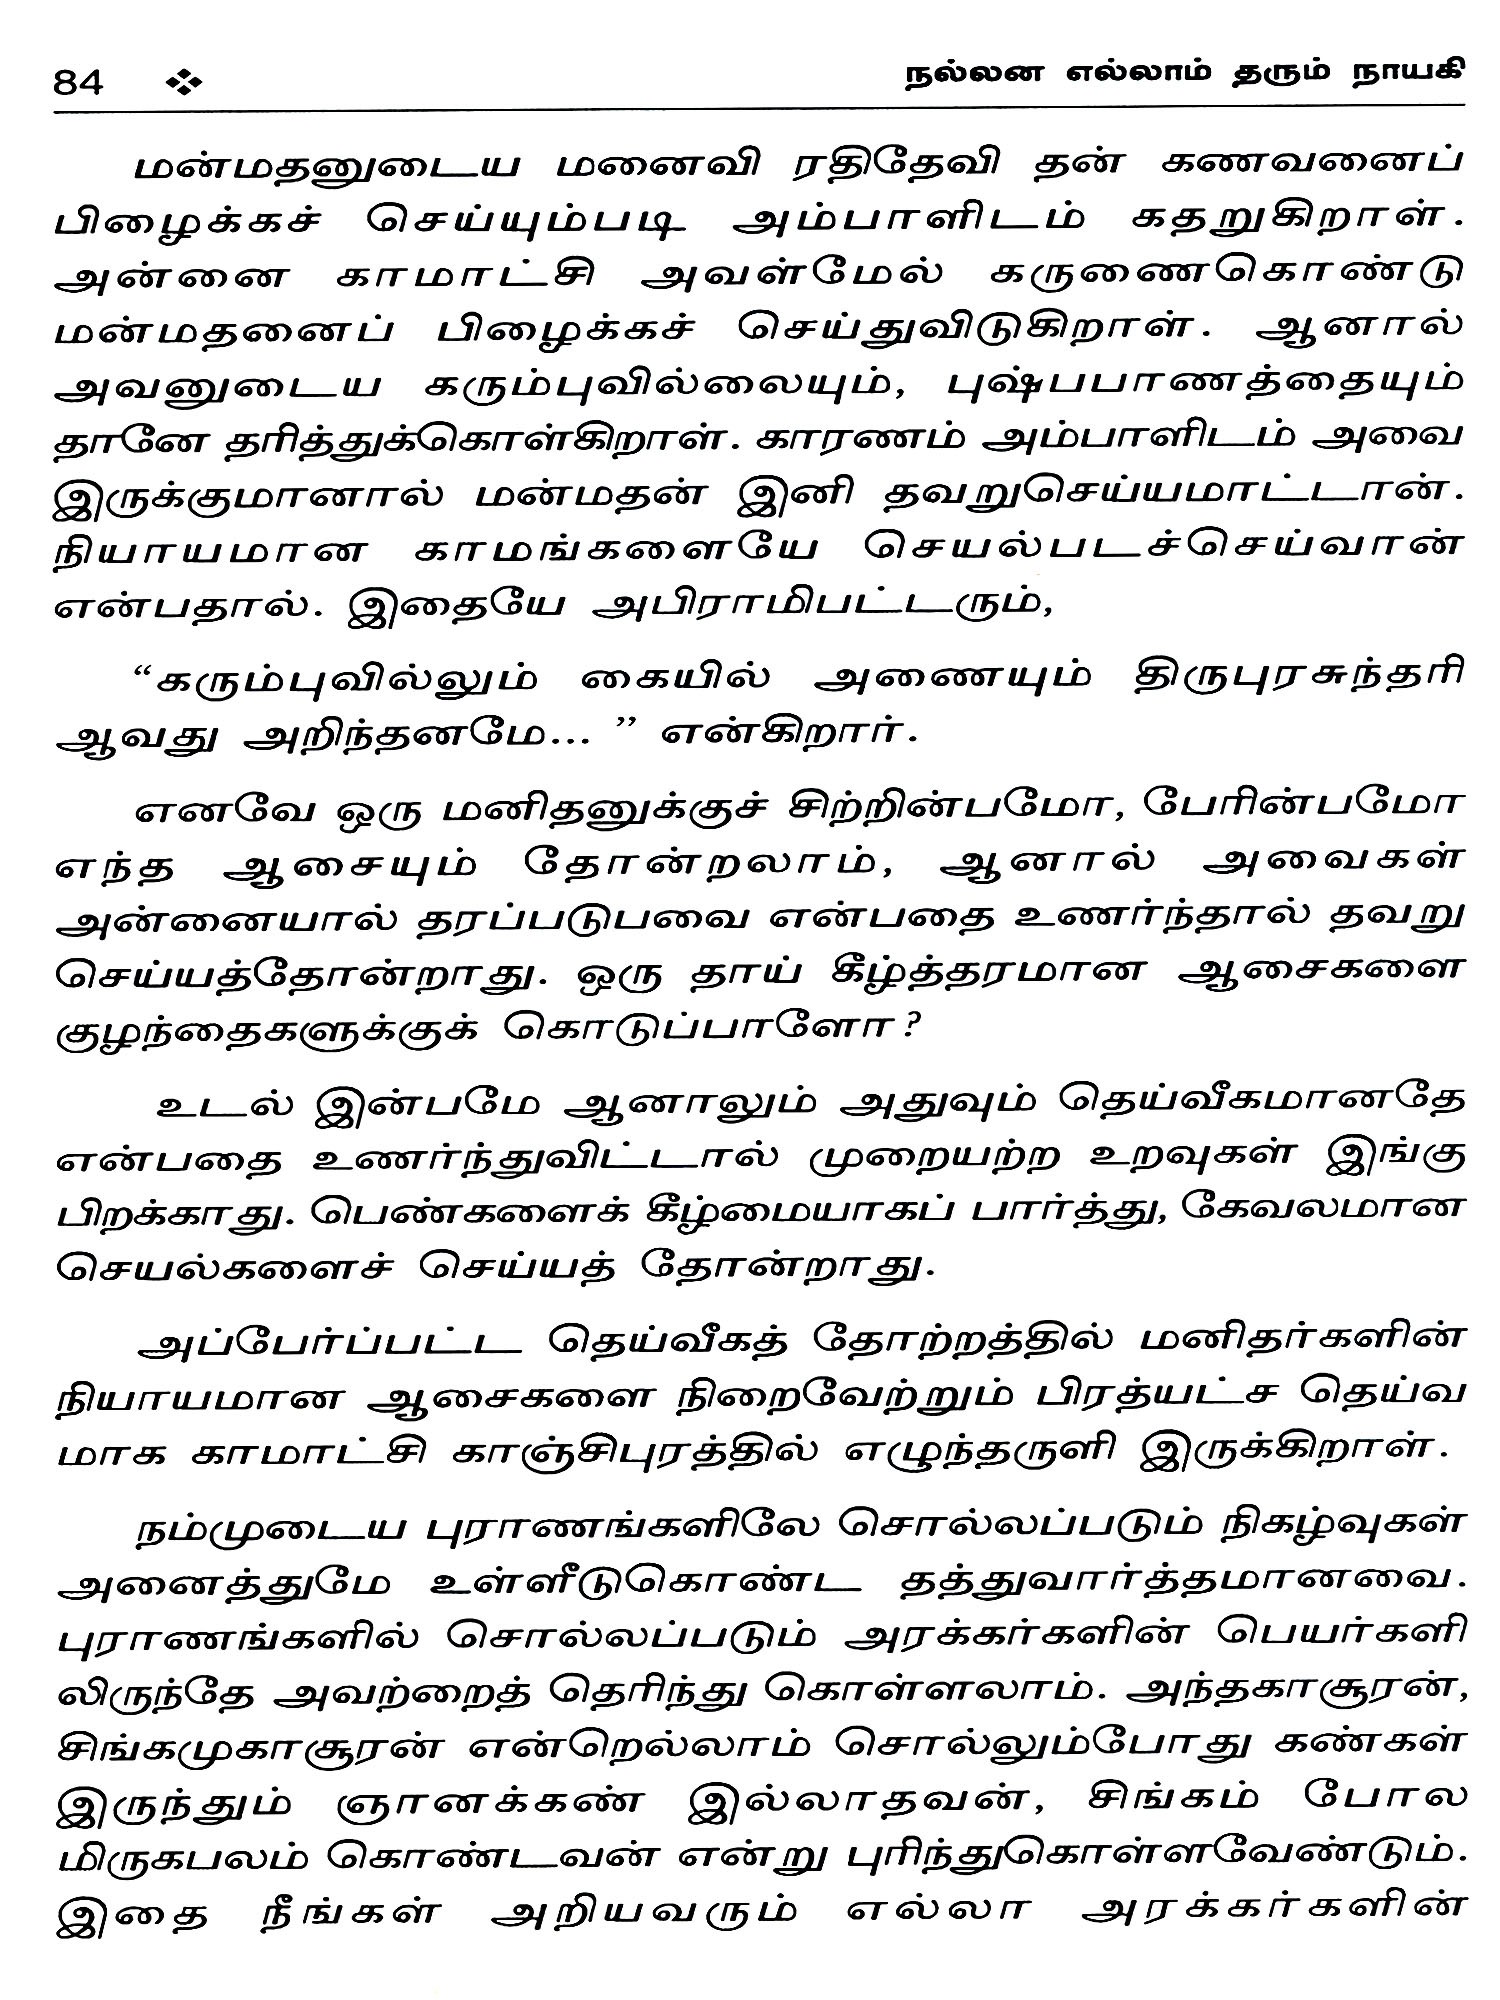 84 ❖ நல்லன எல்லாம் தரும் நாயகி
மன்மதனுடைய மனைவி ரதிதேவி தன் கணவனைப்
பிழைக்கச் செய்யும்படி அம்பாளிடம் கதறுகிறாள்.
அன்னை காமாட்சி அவள்மேல் கருணைகொண்டு
மன்மதனைப் பிழைக்கச் செய்துவிடுகிறாள். ஆனால்
அவனுடைய கரும்புவில்லையும், புஷ்பபாணத்தையும்
தானே தரித்துக்கொள்கிறாள். காரணம் அம்பாளிடம் அவை
இருக்குமானால் மன்மதன் இனி தவறுசெய்யமாட்டான்.
நியாயமான காமங்களையே செயல்படச்செய்வான்
என்பதால். இதையே அபிராமிபட்டரும்,
“கரும்புவில்லும் கையில் அணையும் திருபுரசுந்தரி
ஆவது அறிந்தனமே... ” என்கிறார்.
எனவே ஒரு மனிதனுக்குச் சிற்றின்பமோ, பேரின்பமோ
எந்த ஆசையும் தோன்றலாம், ஆனால் அவைகள்
அன்னையால் தரப்படுபவை என்பதை உணர்ந்தால் தவறு
செய்யத்தோன்றாது. ஒரு தாய் கீழ்த்தரமான ஆசைகளை
குழந்தைகளுக்குக் கொடுப்பாளோ?
உடல் இன்பமே ஆனாலும் அதுவும் தெய்வீகமானதே
என்பதை உணர்ந்துவிட்டால் முறையற்ற உறவுகள் இங்கு
பிறக்காது. பெண்களைக் கீழ்மையாகப் பார்த்து, கேவலமான
செயல்களைச் செய்யத் தோன்றாது.
அப்பேர்ப்பட்ட தெய்வீகத் தோற்றத்தில் மனிதர்களின்
நியாயமான ஆசைகளை நிறைவேற்றும் பிரத்யட்ச தெய்வ
மாக காமாட்சி காஞ்சிபுரத்தில் எழுந்தருளி இருக்கிறாள்.
நம்முடைய புராணங்களிலே சொல்லப்படும் நிகழ்வுகள்
அனைத்துமே உள்ளீடுகொண்ட தத்துவார்த்தமானவை.
புராணங்களில் சொல்லப்படும் அரக்கர்களின் பெயர்களி
லிருந்தே அவற்றைத் தெரிந்து கொள்ளலாம். அந்தகாசூரன்,
சிங்கமுகாசூரன் என்றெல்லாம் சொல்லும்போது கண்கள்
இருந்தும் ஞானக்கண் இல்லாதவன், சிங்கம் போல
மிருகபலம் கொண்டவன் என்று புரிந்துகொள்ளவேண்டும்.
இதை நீங்கள் அறியவரும் எல்லா அரக்கர்களின்